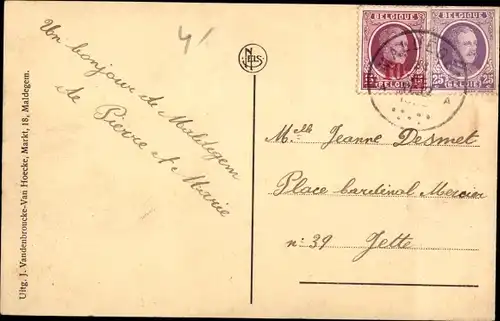 Uitg. J. Vandenbroucke-Van Hoecke, Markt, 18, Maldegem.
41
Un bonjour de Maldegem
de Pierre et Marie
NELS
BELGIQUE
BELGIË
BELGIQUE
25 BELGIË 25
A
Melle Jeanne Desmet
Place Cardinal Mercier
n: 39 Jette